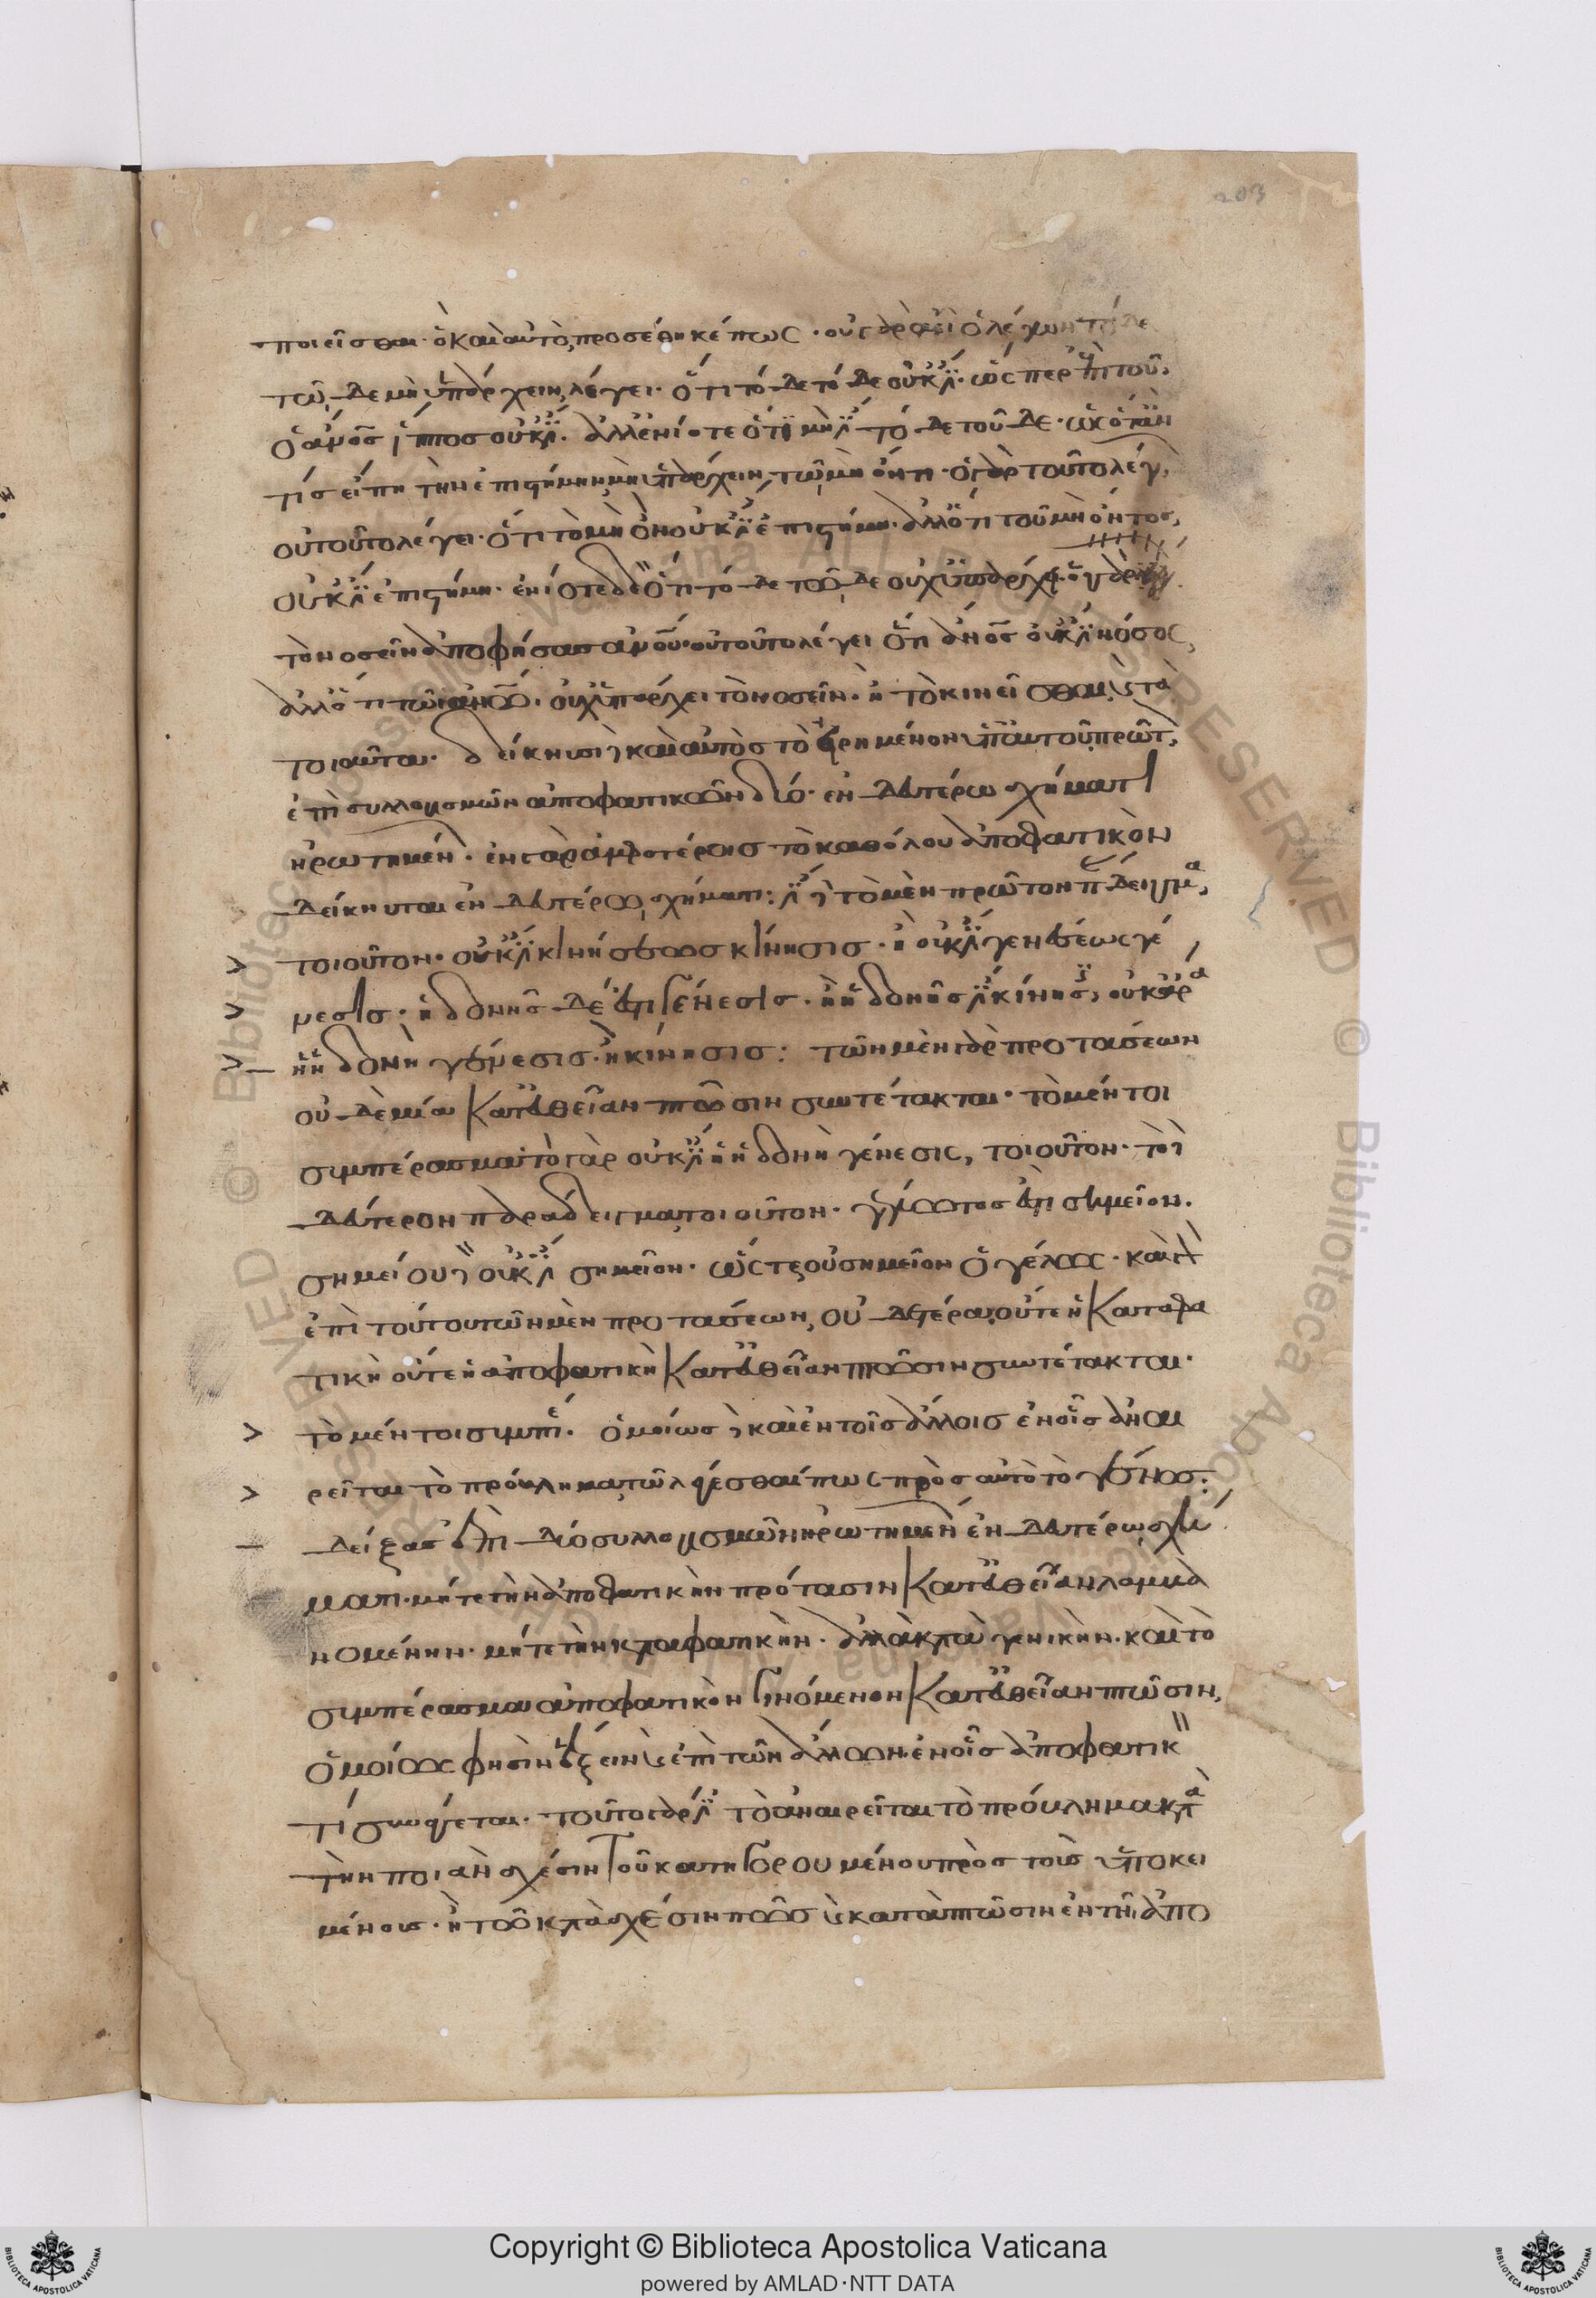 203
ποιεῖσθαι· ὃ καὶ αὐτὸς προσέθηκέ πως· οὐ γὰρ ἀεὶ ὁ λέγων τόδε
τῷδε μὴ ὑπάρχειν, λέγει· ὅτι τόδε τόδε οὐκ ἔστι· ὥσπερ ἐπὶ τοῦ,
ὁ ἄνος ἵππος οὐκ ἔστι. ἀλλ' ἐνίοτε ὅτι μὴ ἔστι τόδε τοῦδε· ὡς ὅταν
τις εἴπη τὴν ἐπιστήμην μὴ ὑπάρχειν τῷ μὴ ὄντι· ὁ γὰρ τοῦτο λέγων,
οὐ τοῦτο λέγει· ὅτι τὸ μὴ ὂν οὐκ ἔστιν ἐπιστήμη· ἀλλ' ὅτι τοῦ μὴ ὄντος,
οὐκ ἔστιν ἐπιστήμη· ἐνίοτε δὲ ὅτι τόδε τῷδε οὐχ ὑπάρχει· ὁ γὰρ
τὸ νοσεῖν ἀποφήσας ἀνου· οὐ τοῦτο λέγει ὅτι ἄνος οὐκ ἔστι νόσος,
ἀλλ' ὅτι τῷ ἀνω· οὐχ ὑπάρχει τὸ νοσεῖν· ἢ τὸ κινεῖσθαι, καὶ τὰ
τοιαῦτα· δείκνυσι δὲ καὶ αὐτὸς τὸ εἰρημένον ὑπ' αὐτοῦ πρῶτον,
ἐπὶ συλλογισμῶν ἀποφατικῶν δύο· ἐν δευτέρω σχήματι
ἠρωτημένων· ἐν γὰρ ἀμφοτέροις τὸ καθόλου ἀποφατικὸν
δείκνυται ἐν δευτέρω σχήματι: ἔστι δὲ τὸ μὲν πρῶτον παράδειγμα,
τοιοῦτον· οὐκ ἔστι κινήσεως κίνησις· ἢ οὐκ ἔστι γενέσεως γέ
νεσις· ἡδονῆς δέ ἐστι γένεσις· ἢ ἡδονῆς ἔστι κίνησις, οὐκ ἄρα
ἡ ἡδονὴ γένεσις· ἢ κίνησις: τῶν μὲν γὰρ προτάσεων
οὐδὲ μία κατ' εὐθεῖαν πτῶσιν συντέτακται· τὸ μέντοι
συμπέρασμα· τὸ γὰρ οὐκ ἔστι ἡ ἡδονὴ γένεσις, τοιοῦτον· τὸ δὲ
δεύτερον παράδειγμα τοιοῦτον· γέλωτος ἐστὶ σημεῖον.
σημείου δὲ οὐκ ἔστι σημεῖον· ὥστε οὐ σημεῖον ὁ γέλως· καὶ
ἐπὶ τούτου τῶν μὲν προτάσεων, οὐδετέρα, οὔτε ἡ καταφα
τικὴ οὔτε ἡ ἀποφατικὴ κατ' εὐθεῖαν πτῶσιν συντέτακται·
τὸ μέντοι συμπέ. ὁμοίως δὲ καὶ ἐν τοῖς ἄλλοις ἐν οἷς ἀναι
ρεῖται τὸ πρόβλημα, τῷ λέγεσθαί πως πρὸς αὐτὸ τὸ γένος:
δείξας ἐπὶ δύο συλλογισμῶν ἠρωτημένων ἐν δευτέρω σχή
ματι· μήτε τὴν ἀποφατικὴν πρότασιν κατ' εὐθεῖαν λαμβα
νομένην· μήτε τὴν καταφατικὴν· ἀλλὰ κατὰ γενικὴν· καὶ τὸ
συμπέρασμα ἀποφατικὸν γινόμενον κατ' εὐθεῖαν πτῶσιν,
ὁμοίως φησὶν ἕξειν καὶ ἐπὶ τῶν ἄλλων· ἐν οἷς ἀποφατικόν
τι συνάγεται· τοῦτο γάρ ἐστι τὸ ἀναιρεῖται τὸ πρόβλημα κατὰ
τὴν ποιὰν σχέσιν τοῦ κατηγορουμένου πρὸς τοῖς ὑποκει
μένοις· ἢ τῷ κατὰ σχέσιν πως καὶ κατὰ πτῶσιν ἐν τῇ ἀπο
Copyright © Biblioteca Apostolica Vaticana
powered by AMLAD·NTT DATA